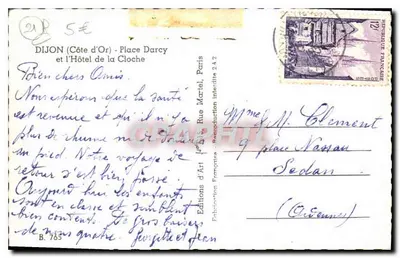 21
5€
DIJON (Côte d'Or) - Place Darcy
et l'Hôtel de la Cloche
Bien chers Amis.
Nous espérons que la santé
est revenue et il n'y a
plus de
un pied. Notre voyage de
retour s'est bien passé.
les enfants
sont en classe et semblent
bien contents. gros baisers
de nous quatre. Georgette et Jean
B. 765
Editions d'Art Rue Martel, Paris
Fabrication Française - Reproduction interdite 242
12F
REPUBLIQUE FRANÇAISE
M. Clement
9 place Nassau
Sedan
(Ardennes)